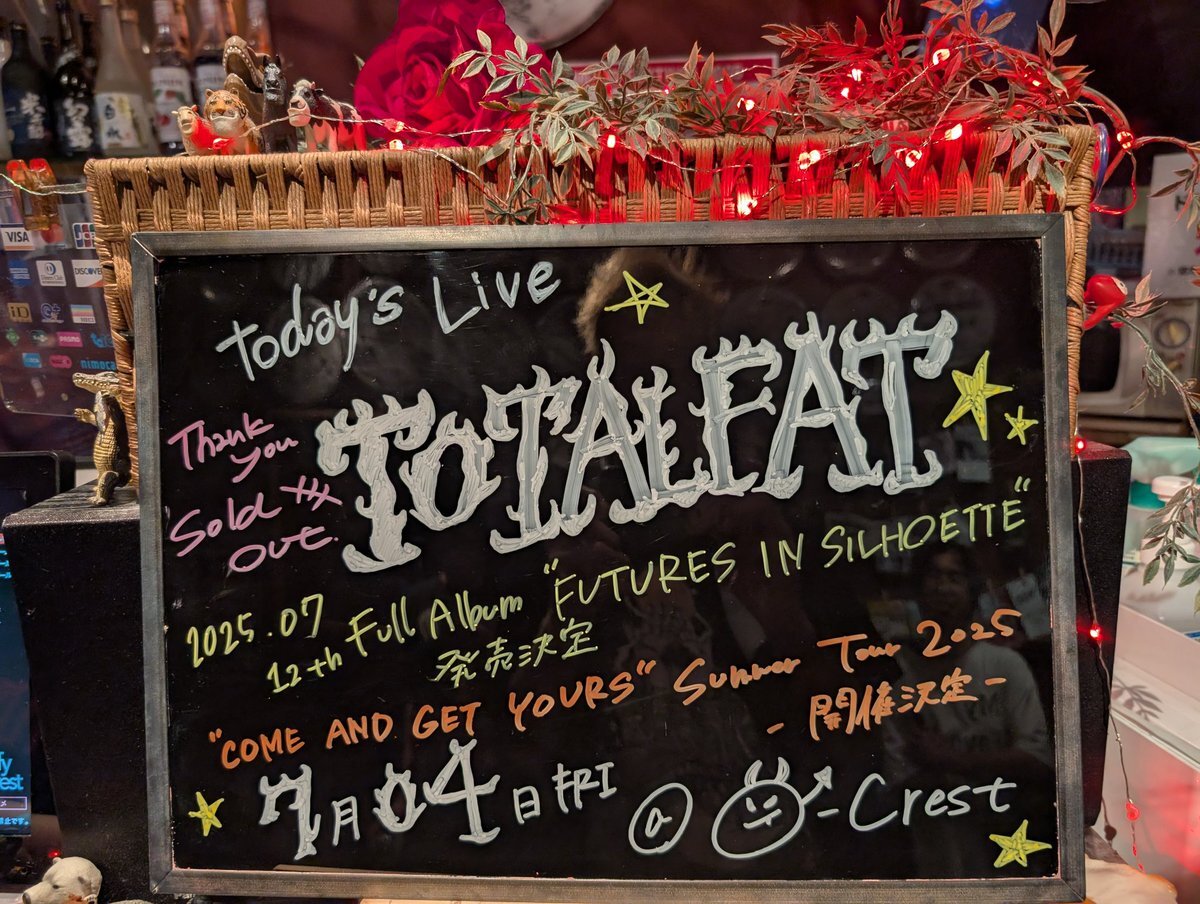 Today's Live
TOTALFAT
Thank
you
Sold
out.
2025.07
12th Full Album "FUTURES IN SILHOETTE"
発売決定
"COME AND GET YOURS" Summer Tour 2025
-開催決定-
7月04日 FRI
@ -Crest
VISA
JCB
Diners Club
DISCOVER
iD
PASMO
nimoca
fy
est